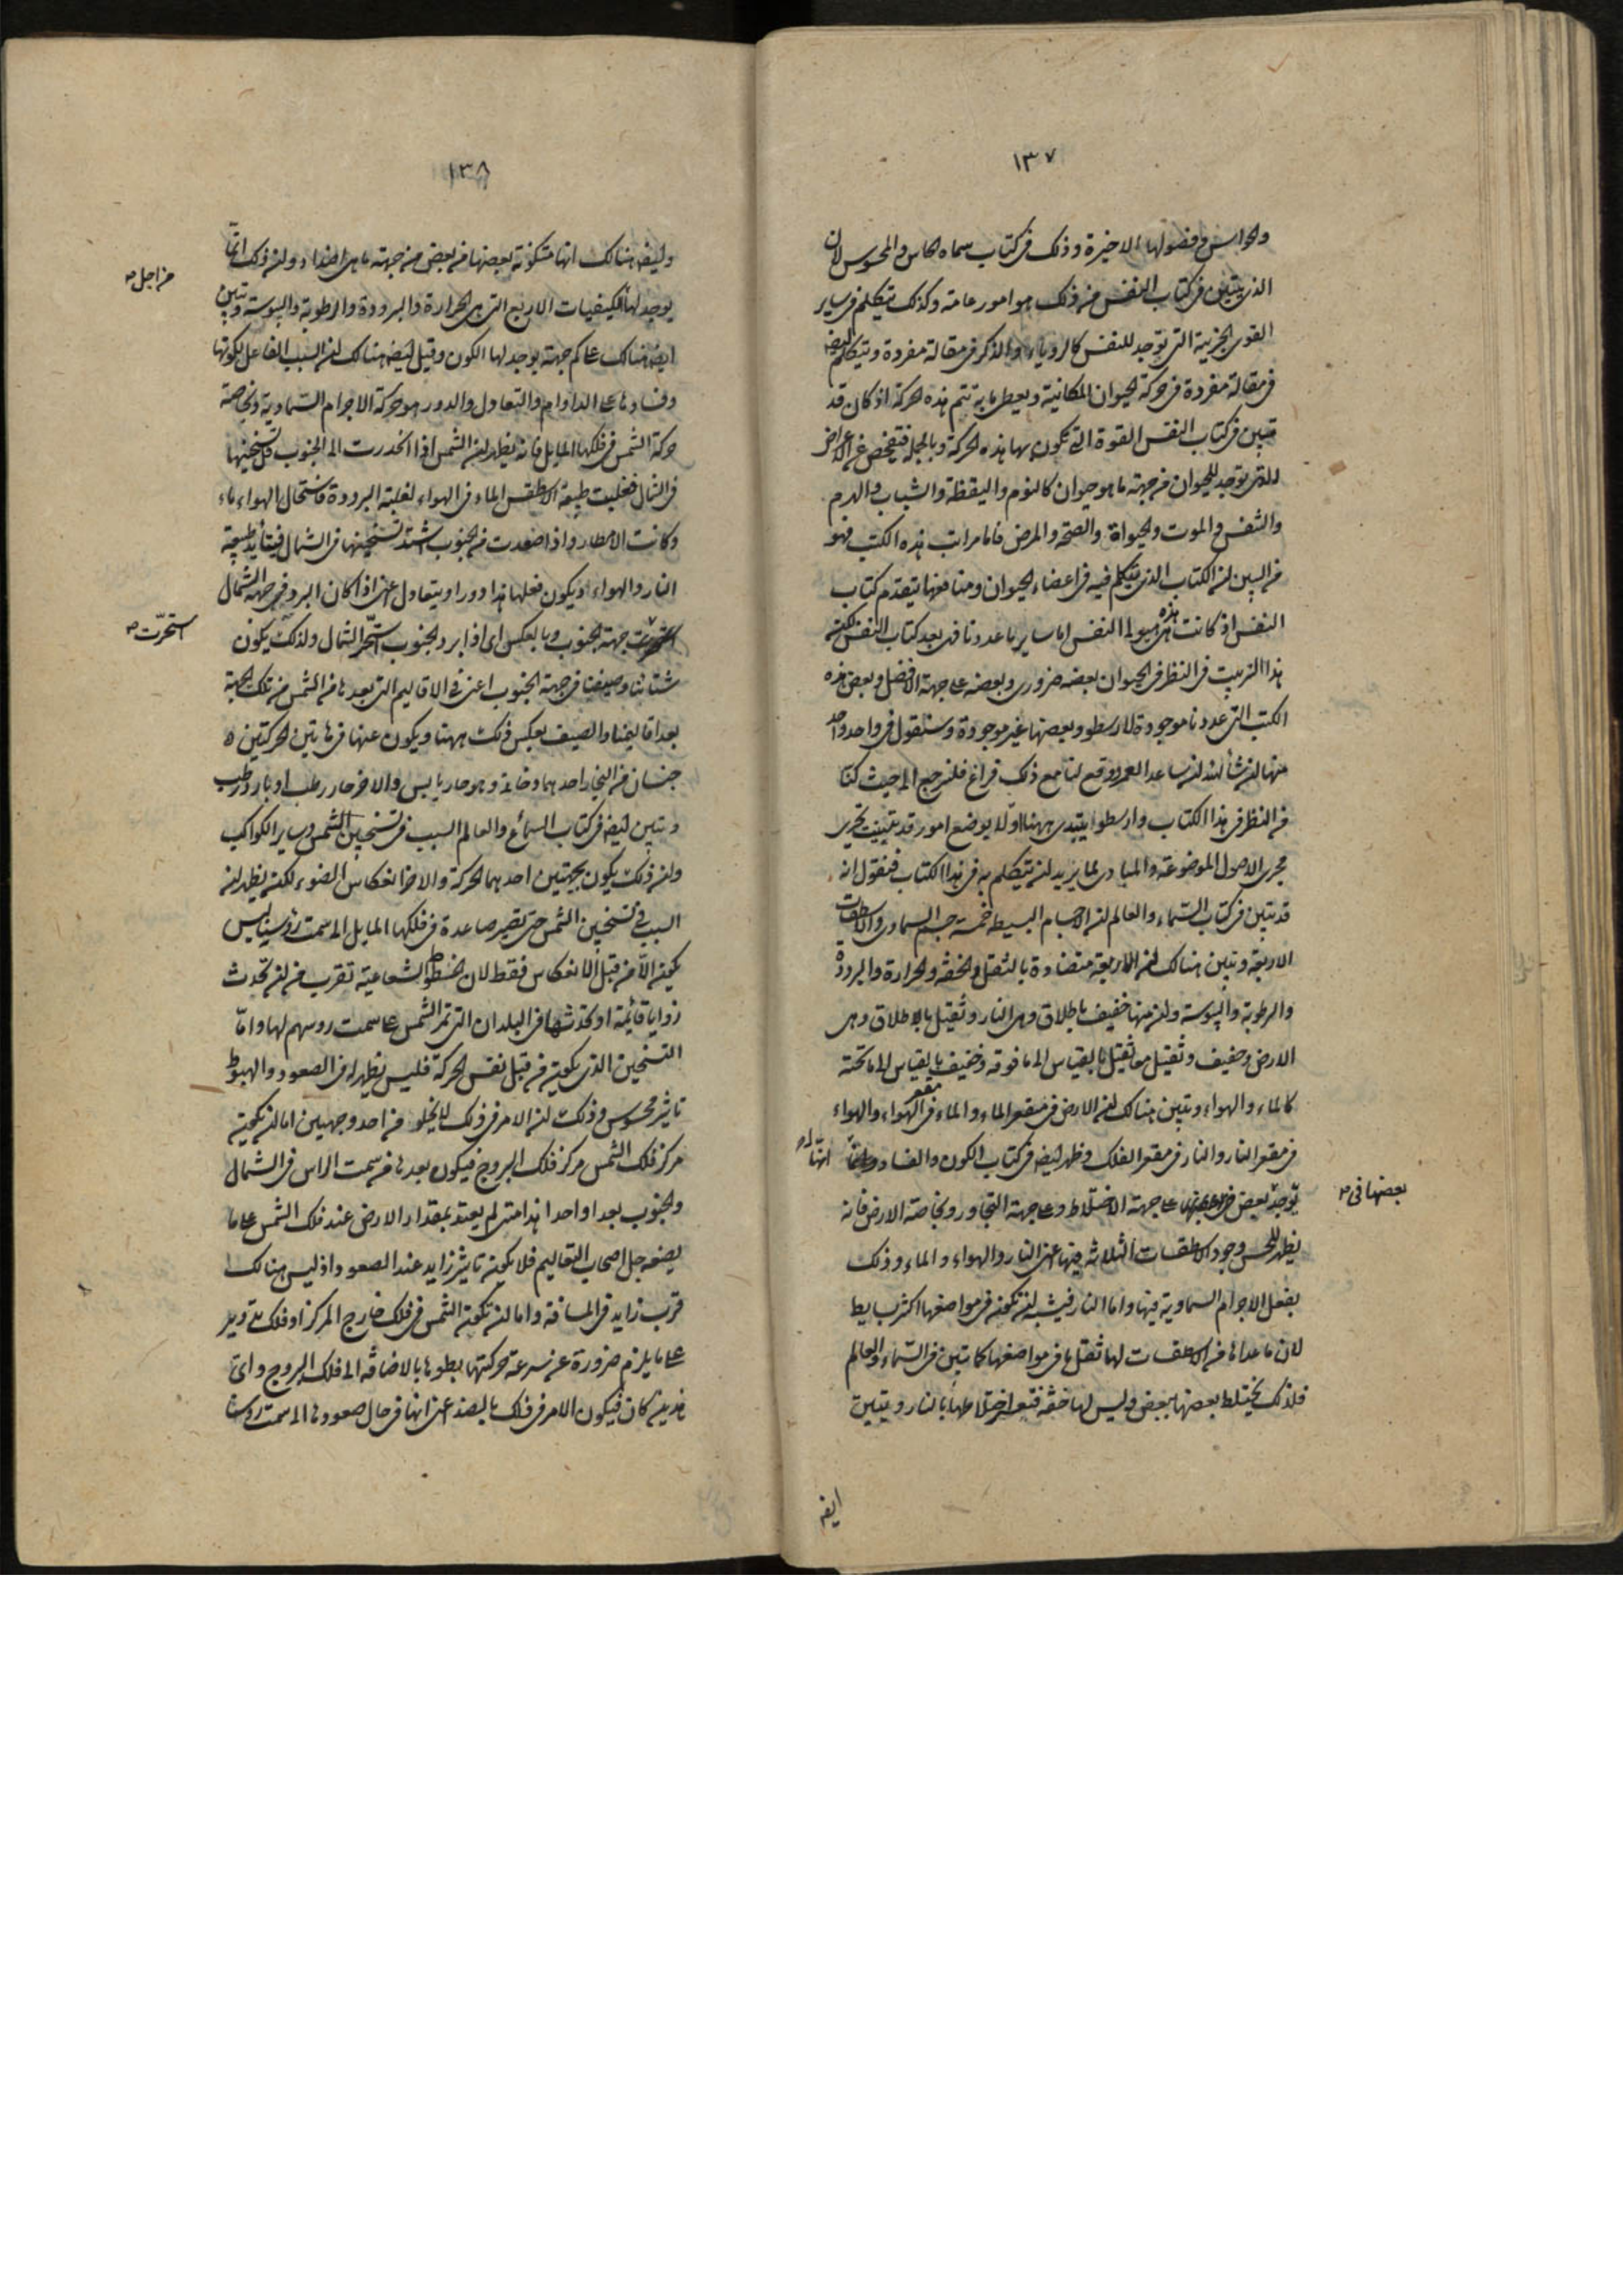 ١٣٧
والحواس وفصولها الاخيرة وذلك فى كتاب سماه الحاس والمحسوس لان
الذى يتبين فى كتاب النفس من ذلك هو امور عامة وكذلك يتكلم فى ساير
القوى الجزئية التى توجد للنفس كالرويا والذكر فى مقالة مفردة ويتكلم ايضا
فى مقالة مفردة فى حركة الحيوان المكانية ويعطى ما به تتم هذه الحركة اذ كان قد
تبين فى كتاب النفس القوة التى تكون بها هذه الحركة وبالجملة فيفحص عن الاعراض
التى توجد للحيوان من جهة ما هو حيوان كالنوم واليقظة والشباب والهرم
والتنفس والموت والحيواة والصحة والمرض فاما مراتب هذه الكتب فهو
من البين ان الكتاب الذى يتكلم فيه فى اعضاء الحيوان ومنافعها يتقدم كتاب
النفس اذ كانت هذه هيولى النفس اما ساير ما عددنا فهى بعد كتاب النفس لكن
هذا الترتيب فى النظر فى الحيوان بعضه ضرورى وبعضه على جهة الافضل وبعض هذه
الكتب التى عددنا موجودة لارسطو وبعضها غير موجودة وسنقول فى واحد واحد
منها ان شأ الله ان ساعد العمر ووقع لنا مع ذلك فراغ فلنرجع الى حيث كنا
من النظر فى هذا الكتاب وارسطو يبتدى ههنا اولا بوضع امور قد تبينت تجرى
مجرى الاصول الموضوعة والمبادى لما يريد ان يتكلم به فى هذا الكتاب فنقول انه
قد تبين فى كتاب السماء والعالم ان الاجسام البسيطة خمسة جسم السماوى والاسطقسات
الاربعة وتبين هنالك ان الاربعة متضادة بالثقل والخفة والحرارة والبرودة
والرطوبة واليبوسة وان منها خفيف باطلاق وهى النار وثقيل بالاطلاق وهى
الارض وخفيف وثقيل معا ثقيل بالقياس الى ما فوقه وخفيف بالقياس الى ما تحته
كالماء والهواء وتبين هنالك ان الارض فى مقعر الماء والماء فى مقعر الهواء والهواء
فى مقعر النار والنار فى مقعر الفلك وظهر ايضا فى كتاب الكون والفساد
انها
توجد بعض على جهة الاختلاط وعلى جهة التجاور وبخاصة الارض فانه
بعضها فى
يظهر للحس وجود الاسطقسات الثلاثة فيها اعنى النار والهواء والماء وذلك
بفعل الاجرام السماوية فيها واما النار فيشبه ان تكون فى مواضعها اكثر بسايط
لان ما عداها من الاسطقسات لها ثقل ما فى مواضعها كما تبين فى السماء والعالم
فلذلك يختلط بعضها ببعض وليس لها خفة فتعسر اختلاطها بالنار وتبين
ايضا
١٣٨
وايضا هنالك انها متكونة بعضها من بعض من جهة ما هى اضداد وان ذلك انما
من اجل
يوجد لها الكيفيات الاربع التى هى الحرارة والبرودة والرطوبة واليبوسة وتبين
ايضا هنالك على كم جهة يوجد لها الكون وقيل ايضا هنالك ان السبب الفاعل لكونها
وفسادها على الدوام والتعادل والدور هو حركة الاجرام السماوية وبخاصة
حركة الشمس فى فلكها المايل فانه يظهر ان الشمس اذا انحدرت الى الجنوب قل تسخينها
فى الشمال فغلبت طبيعة الاسطقس الماء فى الهواء لغلبة البرودة فاستحال الهواء ماء
وكانت الامطار واذا صعدت من الجنوب اشتد تسخينها فى الشمال فيتأيد طبيعة
النار والهواء ويكون فعلها هذا دورا ويتعادل اعنى اذا كان البرد فى جهة الشمال
استحرّت جهة الجنوب وبالعكس اى اذا برد الجنوب استحر الشمال ولذلك يكون
استحرّت
شتاءنا وصيفنا فى جهة الجنوب اعنى فى الاقاليم التى بعدها من الشمس من تلك الجهة
بعد اقاليمنا والصيف بعكس ذلك ههنا ويكون عنها فى هاتين الحركتين
جنسان من البخار احدهما دخانى وهو حار يابس والاخر حار رطب او بارد رطب
وتبين ايضا فى كتاب السماء والعالم السبب فى تسخين الشمس وساير الكواكب
وان ذلك يكون بجهتين احدهما الحركة والاخر انعكاس الضوء لكن يظهر ان
السبب فى تسخين الشمس حتى تصير صاعدة فى فلكها المايل الى سمت رؤسنا ليس
يكون الا من قبل الانعكاس فقط لان الخطوط الشعاعية تقرب من ان تحدث
زوايا قائمة او تحدثها فى البلدان التى تمر الشمس على سمت روسهم لها واما
التسخين الذى يكون من قبل نفس الحركة فليس يظهر له فى الصعود والهبوط
تاثير محسوس وذلك ان الامر فى ذلك لا يخلو من احد وجهين اما ان يكون
مركز فلك الشمس مركز فلك البروج فيكون بعدها من سمت الراس فى الشمال
والجنوب بعدا واحدا هذا متى لم يعتد بمقدار الارض عند فلك الشمس على ما
يضعه جل اصحاب التعاليم فلا يكون تاثير زايد عند الصعود اذ ليس هنالك
قرب زايد فى المسافة واما ان تكون الشمس فى فلك خارج المركز او فلك تدوير
على ما يلزم ضرورة عن سرعة حركتها وبطوها بالاضافة الى فلك البروج واى
هذين كان فيكون الامر فى ذلك بالضد اعنى انها فى حال صعودها الى سمت رؤسنا